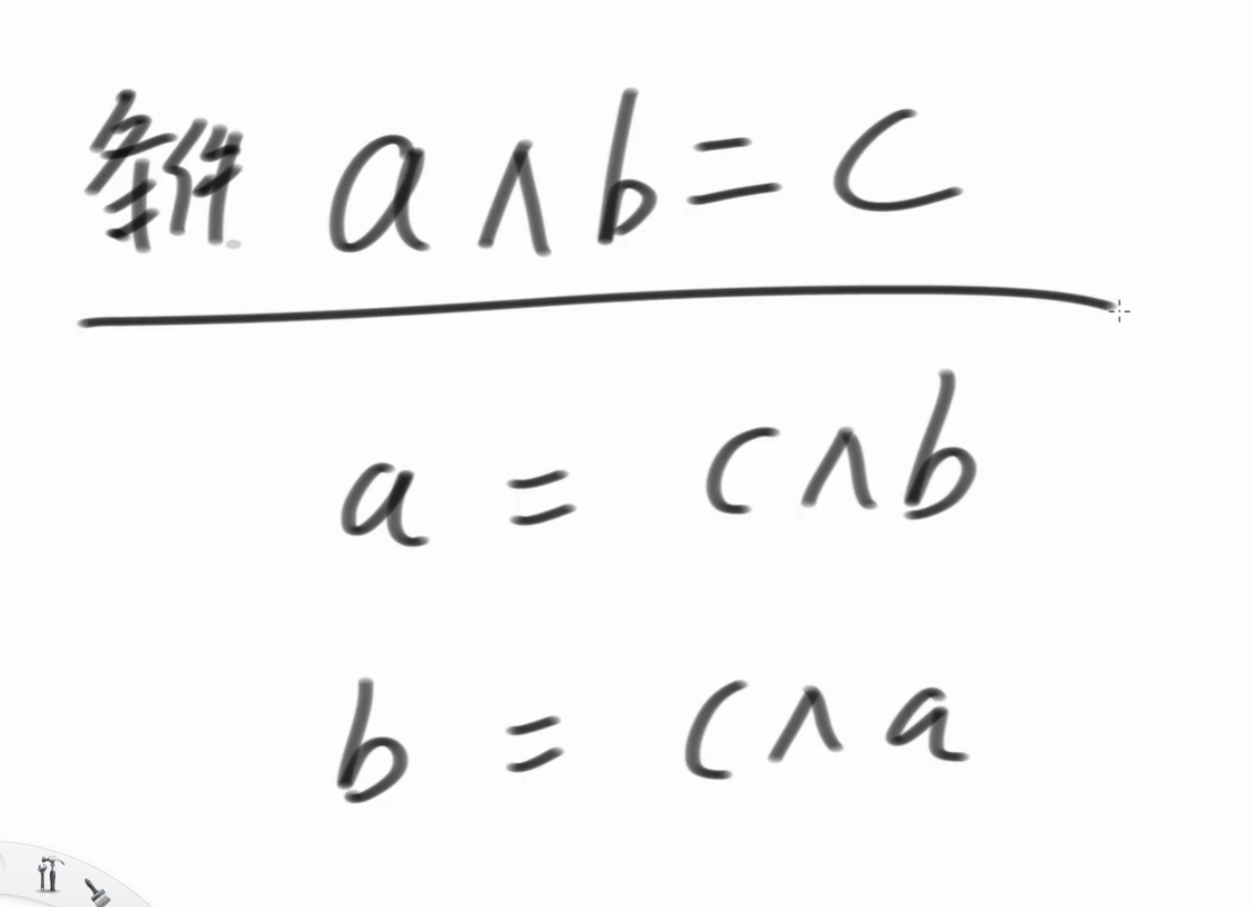 条件 a ∧ b = c
a = c ∧ b
b = c ∧ a